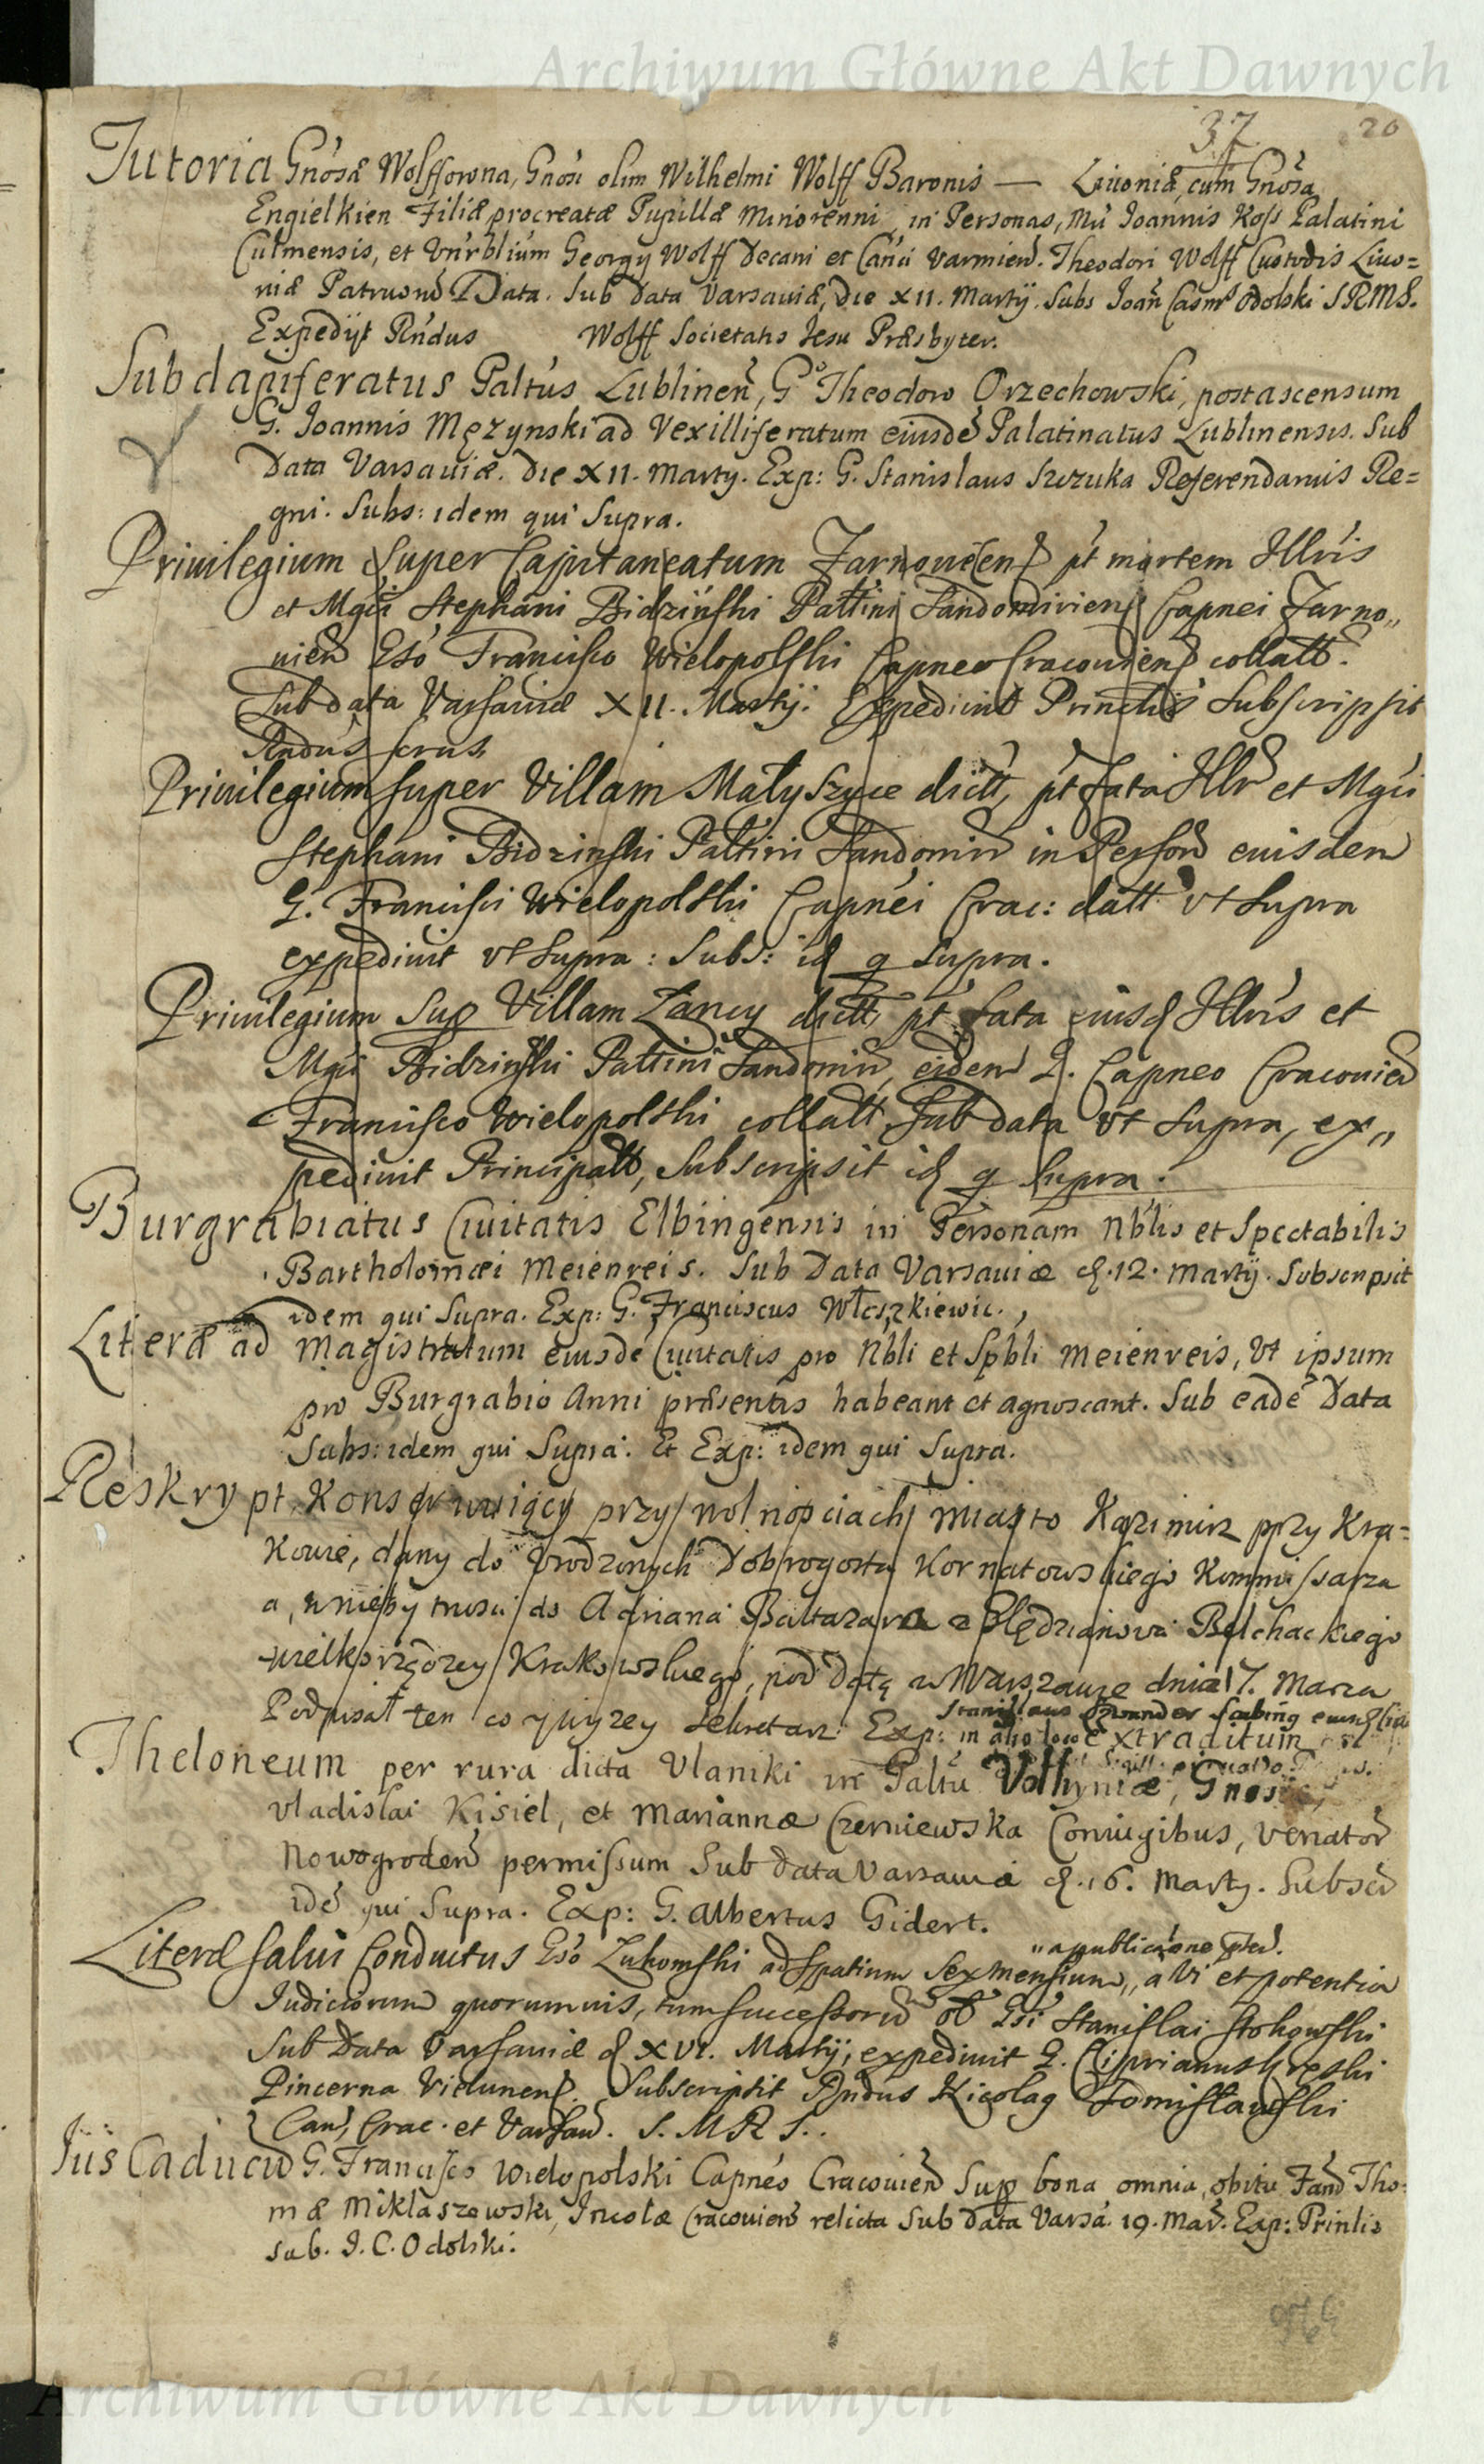 Archiwum Główne Akt Dawnych
37 20
Tutoria Gnosæ Wolffowna, Gnosi olim Wilhelmi Wolff Baronis — Liuoniæ, cum Gnosa
Engielkien Filiæ procreatæ Pupillæ Minorenni, in Personas, Mci Joannis Koss Palatini
Culmensis, et Vnrblium Georgy Wolff Decani et Canci Varmien. Theodori Wolff Custodis Liuo=
niæ Patruon Data. Sub data Varsauiæ, die XII. Martij. Subs Joan Casmr Odolski SRMS.
Expedijt Rndus Wolff Societatis Jesu Præsbyter.
Subdapiferatus Paltus Lublinen, Go Theodoro Orzechowski, post ascensum
G. Joannis Męzynski ad Vexilliferatum eiusde Palatinatus Lublinensis. Sub
Data Varsauiæ. die XII. Marty. Exp: G. Stanislaus Szczuka Referendarius Re=
gni. Subs: idem qui Supra.
Priuilegium super Capitaneatum Tarnouien pt mortem Illris
et Mgci Stephani Bidziński Pattini Sandomirien Capnei Tarno,,
uien Gso Francisco Wielopolski Capneo Cracouien collatt.
Sub data Varsauiæ XII. Martij. Expediuit Princtlis Subscripsit
Rndus srus
Priuilegium super Villam Małyszyce dictt, pt fata Illr et Mgci
Stephani Bidzinski Pattini Sandomir in Person euisdem
G. Francisci Wielopolski Capnei Crac: datt vt Supra
expediuit vt Supra: Subs: id q Supra.
Priuilegium Sup Villam Zancy dictt, pt fata eiusd Illris et
Mgci Bidzinski Pattini Sandomir, eidem G. Capneo Cracouien
Francisco Wielopolski collatt, Sub data vt Supra, ex,,
pediuit Principalt, Subscripsit id q Supra.
Burgrabiatus Ciuitatis Elbingensis in Personam Nblis et Spectabilis
Bartholomæi Meienreis. Sub Data Varsauiæ d. 12. Martij. Subscripsit
idem qui Supra. Exp: G. Franciscus
Literæ ad Magistratum eiusde Ciuitatis pro Nbli et Spbli Meienreis, Vt ipsum
pro Burgrabio Anni præsentis habeant et agnoscant. Sub eade Data
Subs: idem qui Supra. Et Exp: idem qui Supra.
Reskrypt Konserwuiący przy wolnosciach Miasto Kazimirz przy Kra=
kowie, dany do Vrodzonych Dobrogosta Kornatowskiego Kommissarza
a, w niebytnosci do Adriana Baltazara z Bełchackiego
wielkorządzcy Krakowskiego, pod datą w Warszawie dnia 17. Marca
Podpisał ten co y wyzey Sekretarz. Exp: in alio loco extraditum
Stanislaus
Theloneum per rura dicta Vlaniki in Paltu Volhyniæ, Gnosis
Vladislai Kisiel, et Mariannæ Czerniewska Coniugibus, Venator
Nowogroden permissum Sub data Varsauiæ d. 16. Marty. Subscr
ide qui Supra. Exp: G. Albertus Gidert.
,,a publicaone pten.
Literæ salui Conductus Gso Zukomski ad Spatium Sexmensium,, a Vi et potentia
Iudiciorum quorumuis, tum successorum ob Gsi Stanislai Stokowski
Sub Data Varsauiæ d XVI. Martij, expediuit G. Ciprianus
Pincerna Vielunens. Subscripsit Rndus Nicolaq Tomisławski
Can, Crac. et Varsau. S. M R S.
Jus Caducu G. Francisco Wielopolski Capneo Cracouien Sup bona omnia, obitu Fand Tho:
mæ Miklaszewski, Incolæ Cracouien relicta Sub data Varsa. 19. Mar. Exp: Prinlis
sub. J. C. Odolski.
Archiwum Główne Akt Dawnych